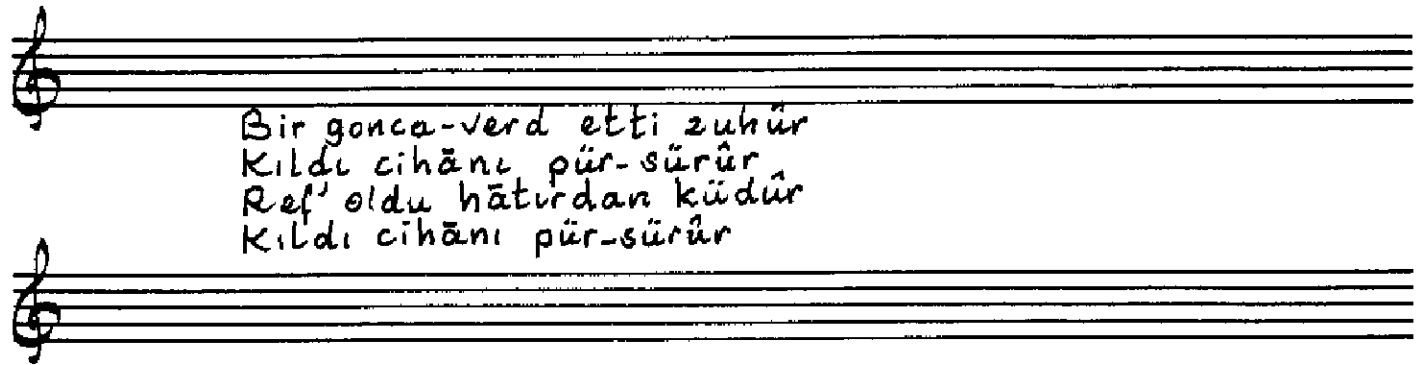 Bir gonca-verd etti zuhûr
Kıldı cihānı pür-sürûr
Ref' oldu hātırdan küdûr
Kıldı cihānı pür-sürûr